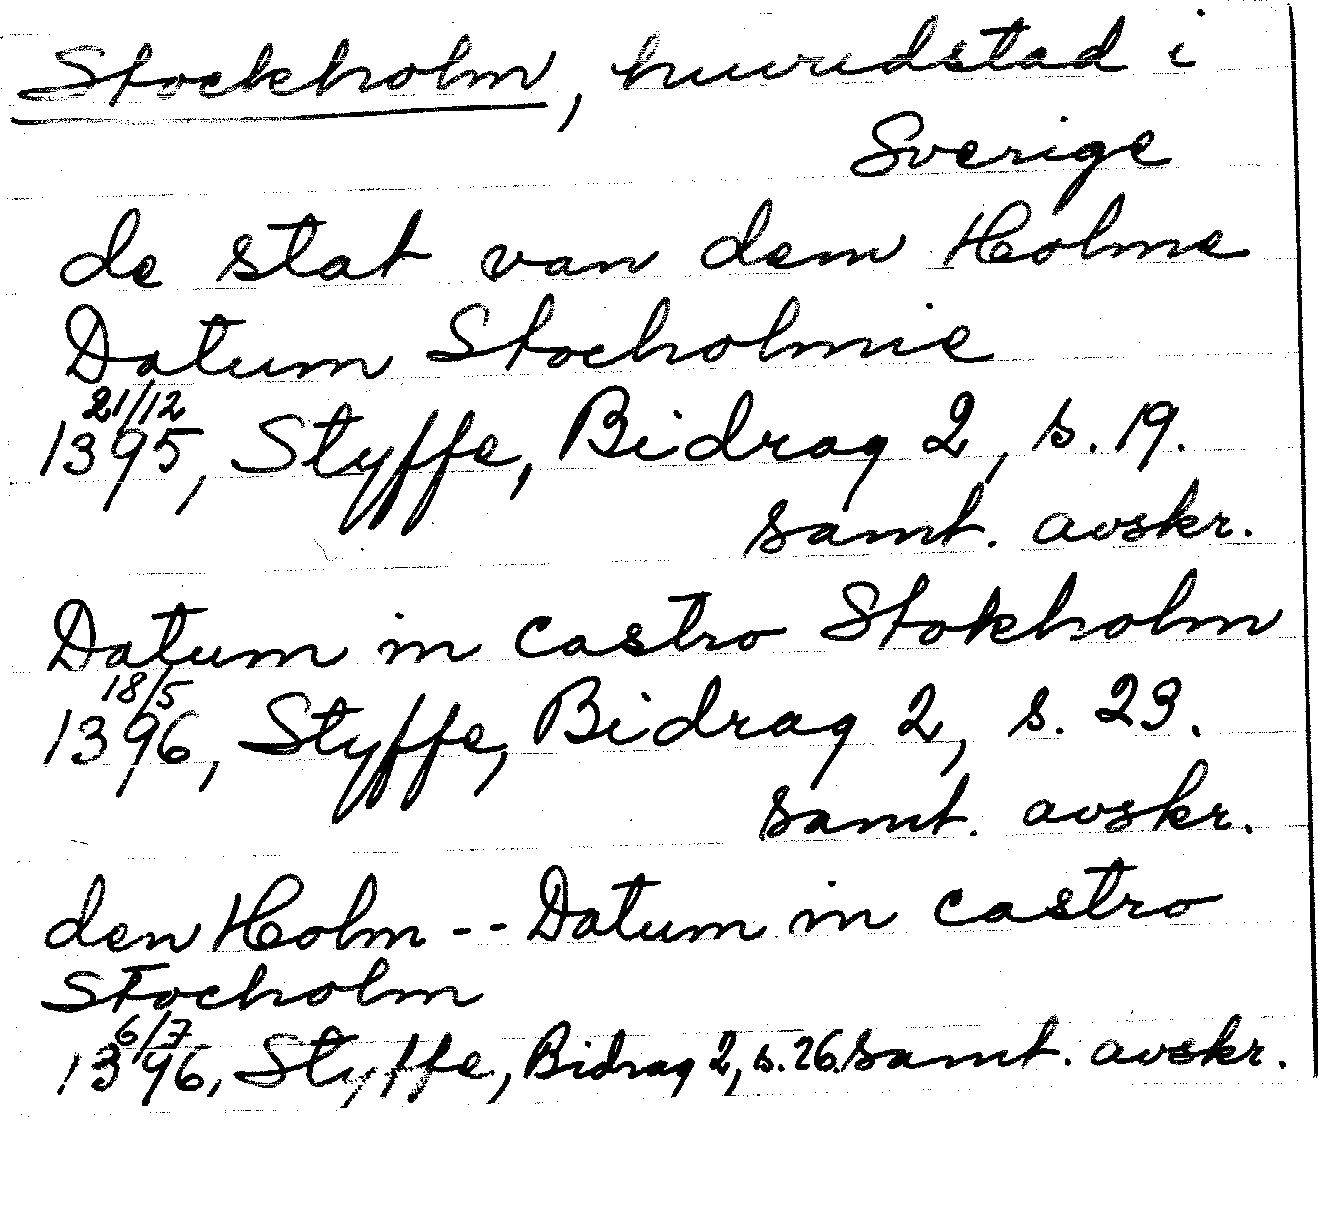 Stockholm, huvudstad i
Sverige
de stat van dem Holme
Datum Stocholmie
21/12
1395, Styffe, Bidrag 2, s. 19.
samt. avskr.
Datum in castro Stokholm
18/5
1396, Styffe, Bidrag 2, s. 23.
samt. avskr.
den Holm -- Datum in castro
Stocholm
6/7
1396, Styffe, Bidrag 2, s. 26. samt. avskr.